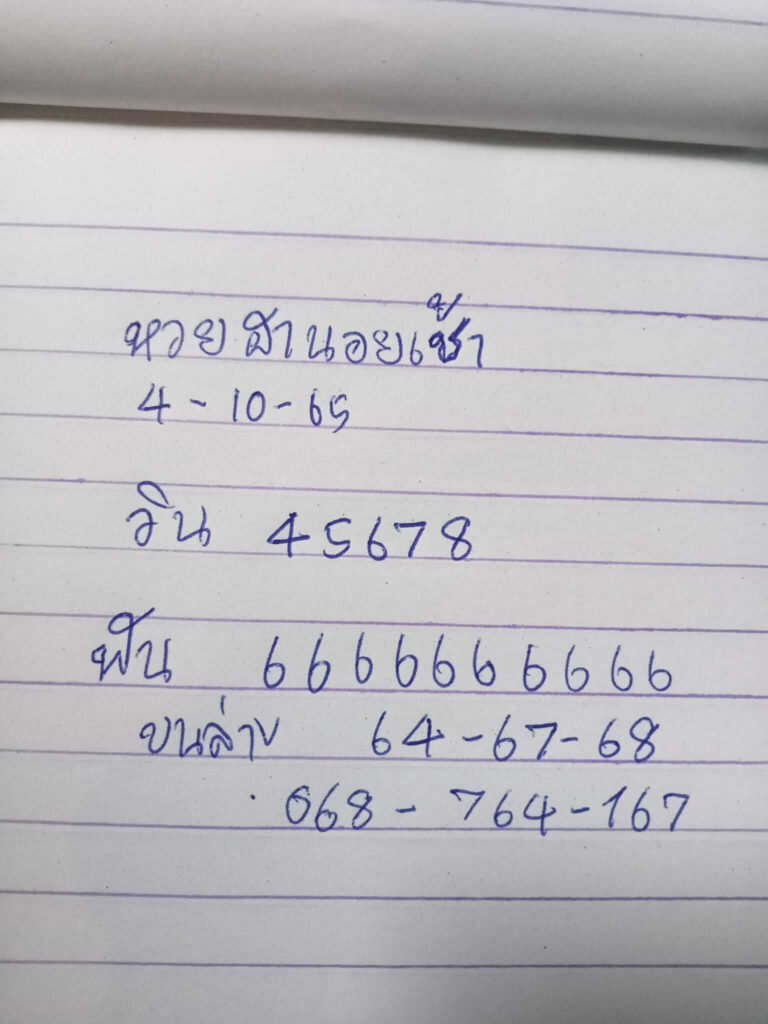 หวย ฮานอยเช้า
4 - 10 - 65
วิน 45678
ฟัน 6666666666
บนล่าง 64 - 67 - 68
068 - 764 - 167